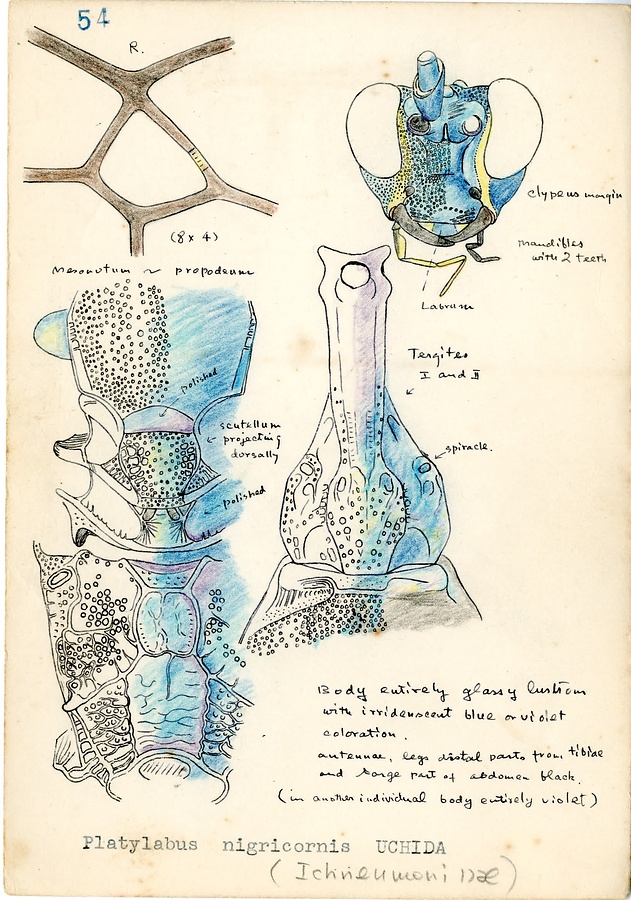 54
R.
(8 x 4)
clypeus margin
mandibles
with 2 teeth
Labrum
Mesonotum ~ propodeum
polished
scutellum
projecting
dorsally
polished
Tergites
I and II
spiracle.
Body entirely glassy lustrous
with irridenscent blue or violet
coloration.
antennae, legs distal parts from tibiae
and large part of abdomen black.
(in another individual body entirely violet)
Platylabus nigricornis UCHIDA
(Ichneumonidae)